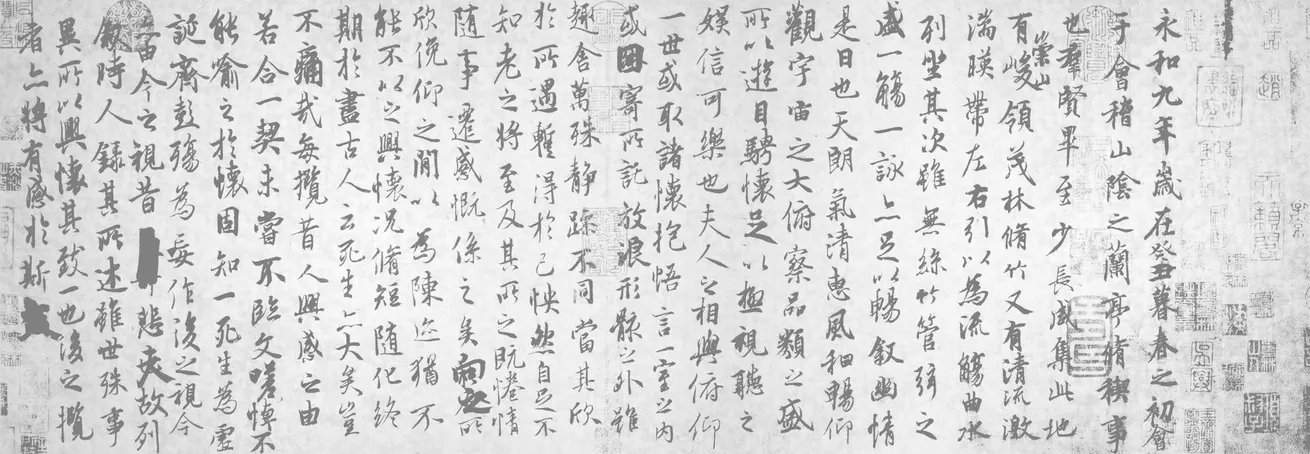 永和九年歲在癸丑暮春之初會
于會稽山陰之蘭亭脩稧事
也羣賢畢至少長咸集此地
有崇山峻領茂林脩竹又有清流激
湍暎帶左右引以為流觴曲水
列坐其次雖無絲竹管弦之
盛一觴一詠亦足以暢叙幽情
是日也天朗氣清惠風和暢仰
觀宇宙之大俯察品類之盛
所以遊目騁懷足以極視聽之
娛信可樂也夫人之相與俯仰
一世或取諸懷抱悟言一室之內
或因寄所託放浪形骸之外雖
趣舍萬殊靜躁不同當其欣
於所遇蹔得於己怏然自足不
知老之將至及其所之既惓情
隨事遷感慨係之矣向之所
欣俛仰之閒以為陳迹猶不
能不以之興懷況脩短隨化終
期於盡古人云死生亦大矣豈
不痛哉每攬昔人興感之由
若合一契未嘗不臨文嗟悼不
能喻之於懷固知一死生為虛
誕齊彭殤為妄作後之視今
亦由今之視昔悲夫故列
敘時人錄其所述雖世殊事
異所以興懷其致一也後之攬
者亦將有感於斯文